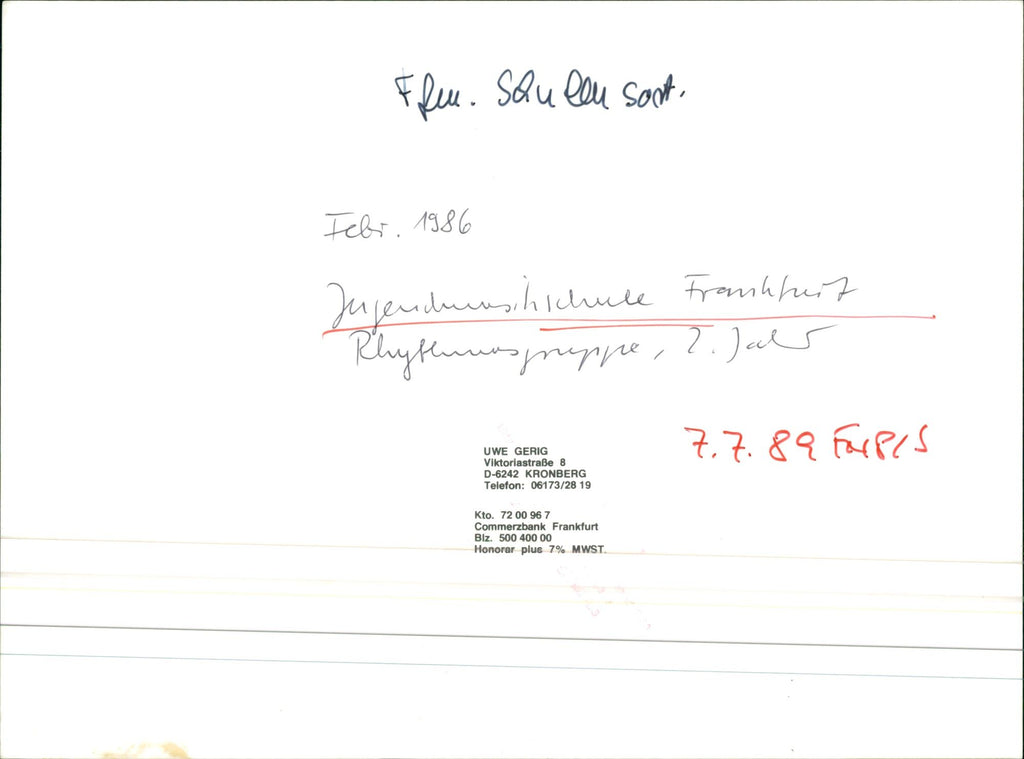 Ffm. Schulen Sort.
Febr. 1986
Jugendmusikschule Frankfurt
Rhythmusgruppe, 2. Jahr
7.7.89
UWE GERIG
Viktoriastraße 8
D-6242 KRONBERG
Telefon: 06173/28 19
Kto. 72 00 96 7
Commerzbank Frankfurt
Blz. 500 400 00
Honorar plus 7% MWST.